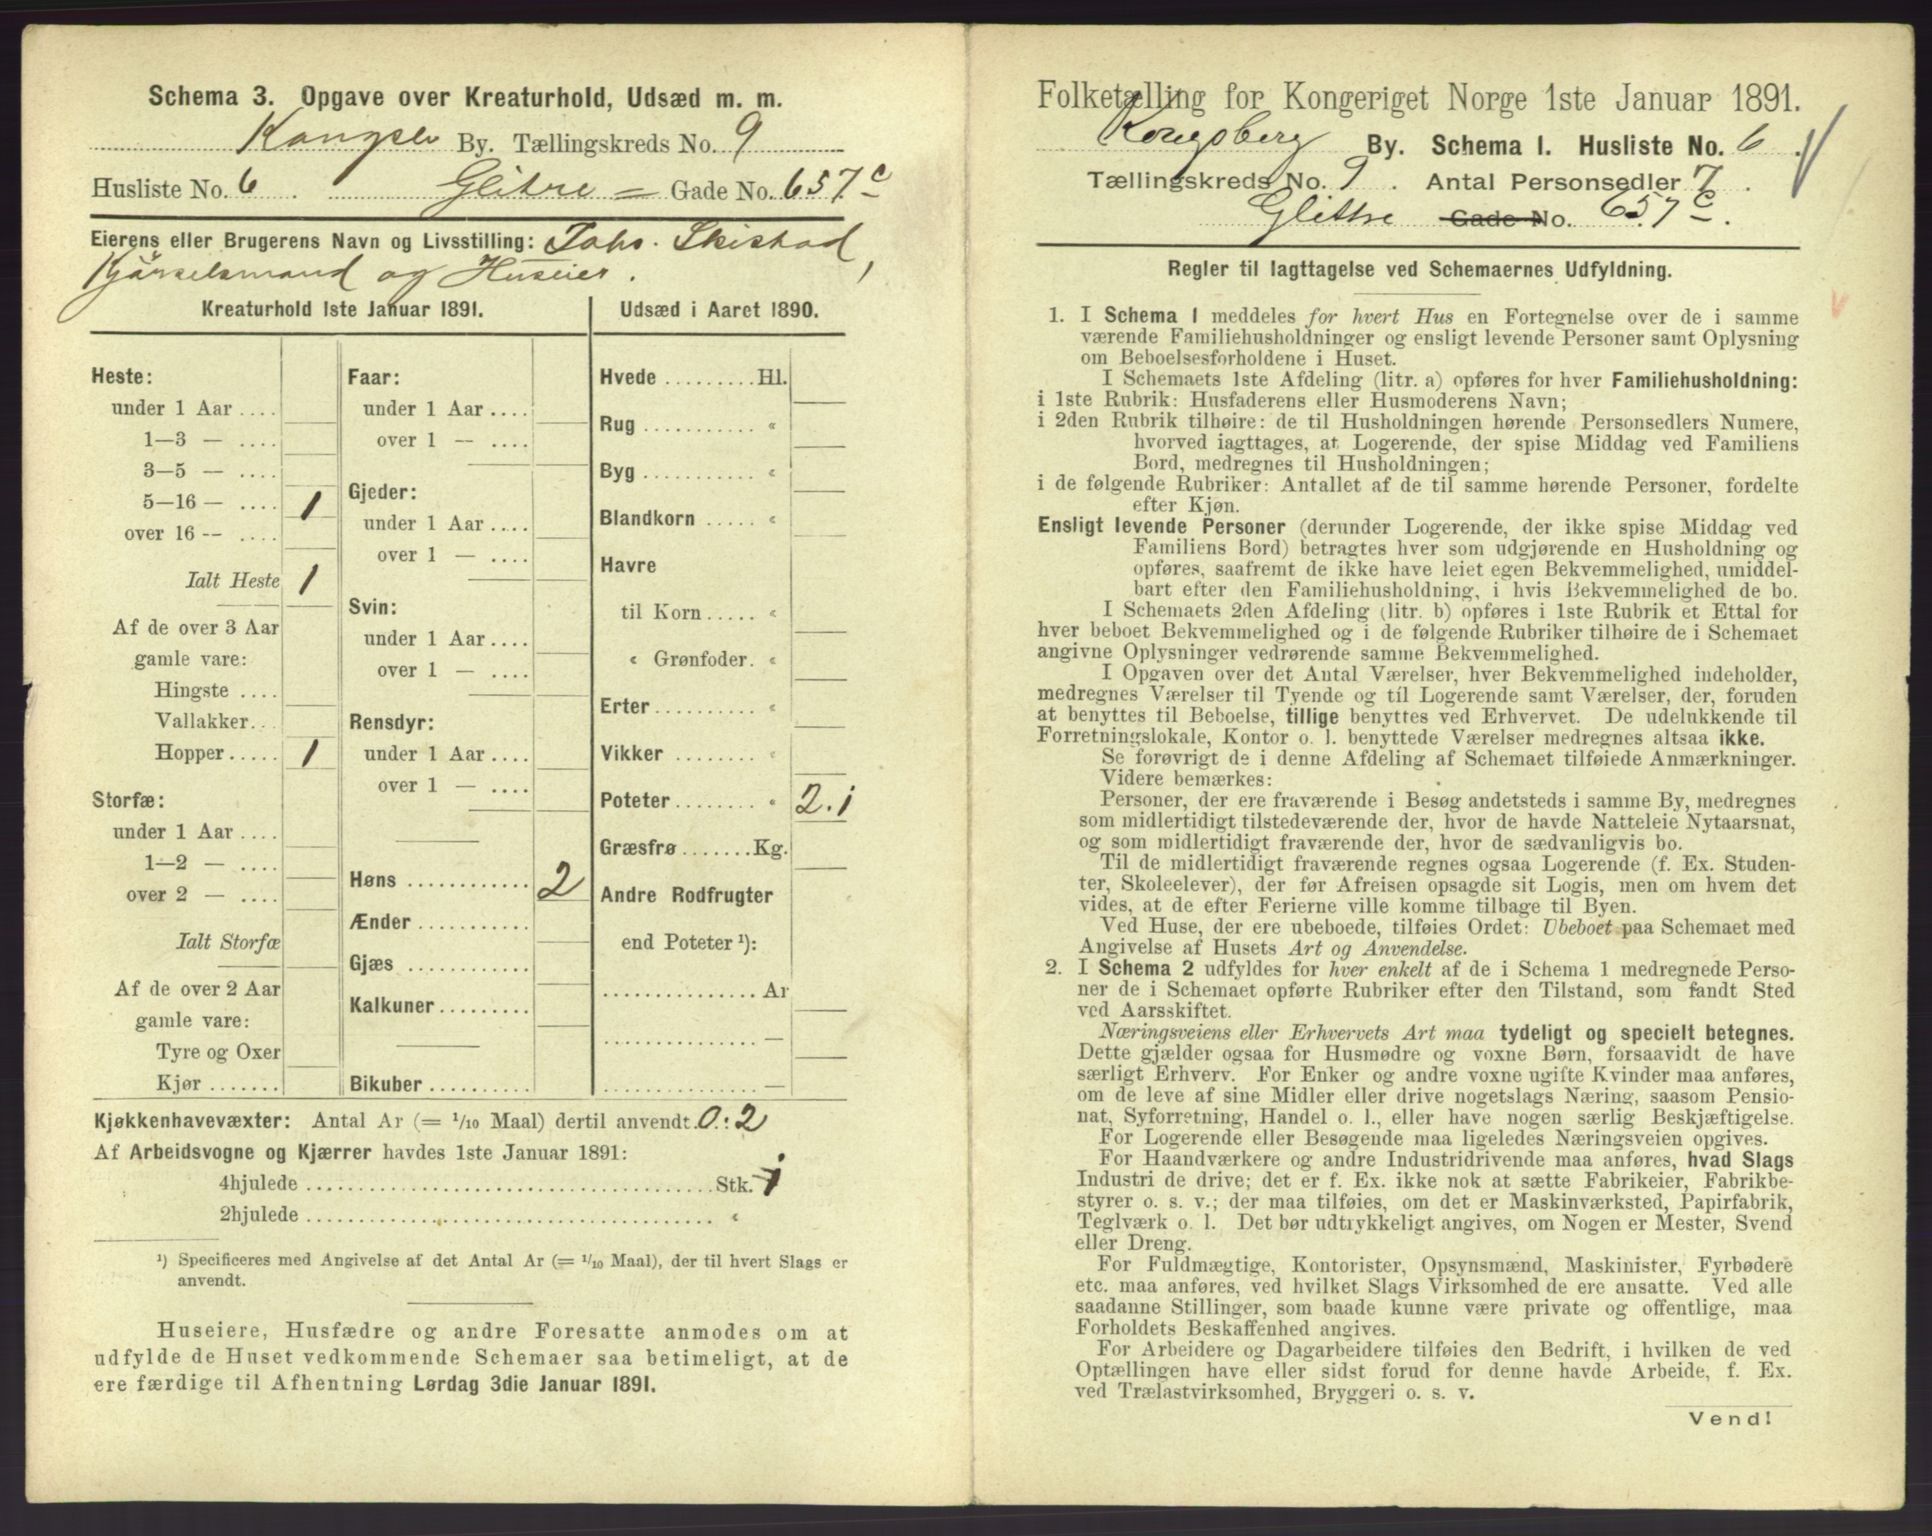 Schema 3. Opgave over Kreaturhold, Udsæd m. m.
By. Tællingskreds No. 9
Husliste No. 6 Glitre = Gade No. 657 c
Eierens eller Brugerens Navn og Livsstilling: Johs. Skistad,
Kjørselsmand og Huseier.
Kreaturhold 1ste Januar 1891.
Heste:
under 1 Aar ....
1—3 — ....
3—5 — ....
5—16 — .... 1
over 16 -- ....
Ialt Heste 1
Af de over 3 Aar
gamle vare:
Hingste ....
Vallakker...
Hopper..... 1
Storfæ:
under 1 Aar ....
1—2 — ....
over 2 — ....
Ialt Storfæ
Af de over 2 Aar
gamle vare:
Tyre og Oxer
Kjør .......
Faar:
under 1 Aar ....
over 1 — ....
Gjeder:
under 1 Aar ....
over 1 — ....
Svin:
under 1 Aar ....
over 1 — ....
Rensdyr:
under 1 Aar ....
over 1 — ....
Høns ............ 2
Ænder ...........
Gjæs ............
Kalkuner.........
Bikuber ..........
Udsæd i Aaret 1890.
Hvede ......... Hl.
Rug ........... «
Byg ........... «
Blandkorn ..... «
Havre
til Korn ..... «
« Grønfoder. «
Erter.......... «
Vikker ........ «
Poteter........ « 2.i
Græsfrø .......Kg.
Andre Rodfrugter
end Poteter ¹):
............... Ar
............... —
............... —
Kjøkkenhavevæxter: Antal Ar (= 1/10 Maal) dertil anvendt. 0.:2
Af Arbeidsvogne og Kjærrer havdes 1ste Januar 1891:
4hjulede ........................................ Stk. i
2hjulede ........................................ «
¹) Specificeres med Angivelse af det Antal Ar (= 1/10 Maal), der til hvert Slags er
anvendt.
Huseiere, Husfædre og andre Foresatte anmodes om at
udfylde de Huset vedkommende Schemaer saa betimeligt, at de
ere færdige til Afhentning Lørdag 3die Januar 1891.
Folketælling for Kongeriget Norge 1ste Januar 1891.
Kongsberg By. Schema I. Husliste No. 6.
Tællingskreds No. 9. Antal Personsedler 7.
Glittre Gade No. 657 c.
Regler til Iagttagelse ved Schemaernes Udfyldning.
1. I Schema 1 meddeles for hvert Hus en Fortegnelse over de i samme
værende Familiehusholdninger og ensligt levende Personer samt Oplysning
om Beboelsesforholdene i Huset.
I Schemaets 1ste Afdeling (litr. a) opføres for hver Familiehusholdning:
i 1ste Rubrik: Husfaderens eller Husmoderens Navn;
i 2den Rubrik tilhøire: de til Husholdningen hørende Personsedlers Numere,
hvorved iagttages, at Logerende, der spise Middag ved Familiens
Bord, medregnes til Husholdningen;
i de følgende Rubriker: Antallet af de til samme hørende Personer, fordelte
efter Kjøn.
Ensligt levende Personer (derunder Logerende, der ikke spise Middag ved
Familiens Bord) betragtes hver som udgjørende en Husholdning og
opføres, saafremt de ikke have leiet egen Bekvemmelighed, umiddel-
bart efter den Familiehusholdning, i hvis Bekvemmelighed de bo.
I Schemaets 2den Afdeling (litr. b) opføres i 1ste Rubrik et Ettal for
hver beboet Bekvemmelighed og i de følgende Rubriker tilhøire de i Schemaet
angivne Oplysninger vedrørende samme Bekvemmelighed.
I Opgaven over det Antal Værelser, hver Bekvemmelighed indeholder,
medregnes Værelser til Tyende og til Logerende samt Værelser, der, foruden
at benyttes til Beboelse, tillige benyttes ved Erhvervet. De udelukkende til
Forretningslokale, Kontor o. l. benyttede Værelser medregnes altsaa ikke.
Se forøvrigt de i denne Afdeling af Schemaet tilføiede Anmærkninger.
Videre bemærkes:
Personer, der ere fraværende i Besøg andetsteds i samme By, medregnes
som midlertidigt tilstedeværende der, hvor de havde Natteleie Nytaarsnat,
og som midlertidigt fraværende der, hvor de sædvanligvis bo.
Til de midlertidigt fraværende regnes ogsaa Logerende (f. Ex. Studen-
ter, Skoleelever), der før Afreisen opsagde sit Logis, men om hvem det
vides, at de efter Ferierne ville komme tilbage til Byen.
Ved Huse, der ere ubeboede, tilføies Ordet: Ubeboet paa Schemaet med
Angivelse af Husets Art og Anvendelse.
2. I Schema 2 udfyldes for hver enkelt af de i Schema 1 medregnede Perso-
ner de i Schemaet opførte Rubriker efter den Tilstand, som fandt Sted
ved Aarsskiftet.
Næringsveiens eller Erhvervets Art maa tydeligt og specielt betegnes.
Dette gjælder ogsaa for Husmødre og voxne Børn, forsaavidt de have
særligt Erhverv. For Enker og andre voxne ugifte Kvinder maa anføres,
om de leve af sine Midler eller drive nogetslags Næring, saasom Pensio-
nat, Syforretning, Handel o. l., eller have nogen særlig Beskjæftigelse.
For Logerende eller Besøgende maa ligeledes Næringsveien opgives.
For Haandværkere og andre Industridrivende maa anføres, hvad Slags
Industri de drive; det er f. Ex. ikke nok at sætte Fabrikeier, Fabrikbe-
styrer o. s. v.; der maa tilføies, om det er Maskinværksted, Papirfabrik,
Teglværk o. l. Det bør udtrykkeligt angives, om Nogen er Mester, Svend
eller Dreng.
For Fuldmægtige, Kontorister, Opsynsmænd, Maskinister, Fyrbødere
etc. maa anføres, ved hvilket Slags Virksomhed de ere ansatte. Ved alle
saadanne Stillinger, som baade kunne være private og offentlige, maa
Forholdets Beskaffenhed angives.
For Arbeidere og Dagarbeidere tilføies den Bedrift, i hvilken de ved
Optællingen have eller sidst forud for denne havde Arbeide, f. Ex.
ved Trælastvirksomhed, Bryggeri o. s. v.
Vend!